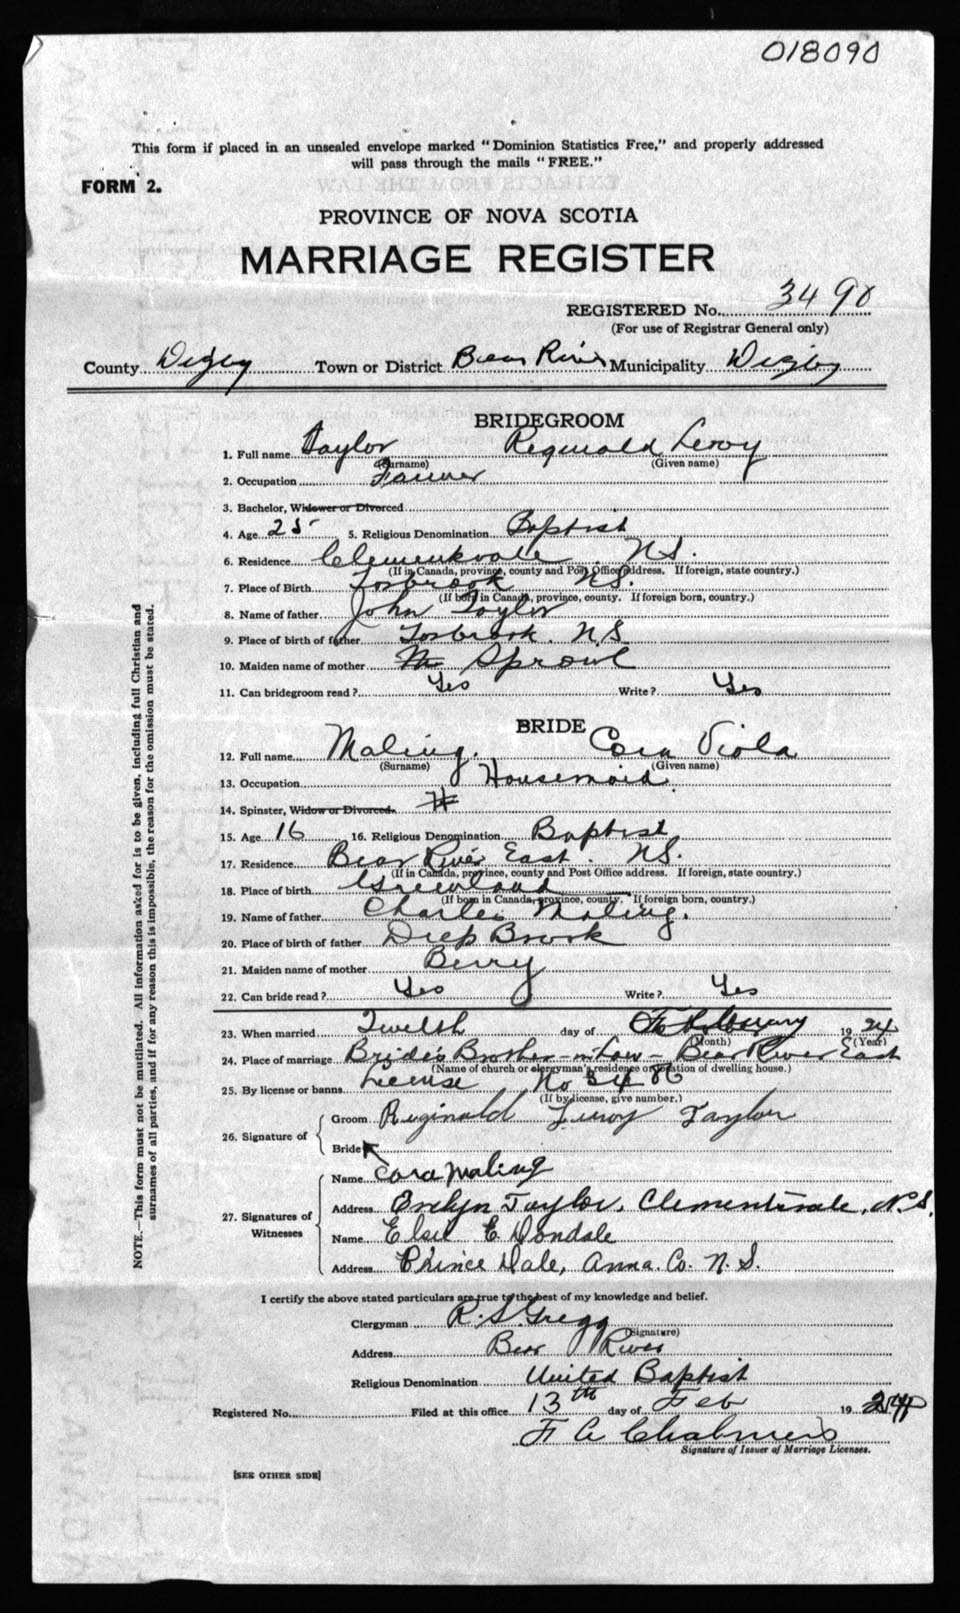 018090
This form if placed in an unsealed envelope marked "Dominion Statistics Free," and properly addressed
will pass through the mails "FREE."
FORM 2.
PROVINCE OF NOVA SCOTIA
MARRIAGE REGISTER
REGISTERED No. 3490
(For use of Registrar General only)
County Digby Town or District Bear River Municipality Digby
BRIDEGROOM
1. Full name Taylor Reginald Leroy
(Surname) (Given name)
2. Occupation Farmer
3. Bachelor, Widower or Divorced
4. Age 25 5. Religious Denomination Baptist
6. Residence Clementsvale N.S.
(If in Canada, province, county and Post Office address. If foreign, state country.)
7. Place of Birth Torbrook N.S.
(If born in Canada, province, county. If foreign born, country.)
8. Name of father John Taylor
9. Place of birth of father Torbrook. N.S
10. Maiden name of mother Sprowl
11. Can bridegroom read? Yes Write? Yes
BRIDE
12. Full name Maling. Cora Viola
(Surname) (Given name)
13. Occupation Housemaid
14. Spinster, Widow or Divorced.
15. Age 16 16. Religious Denomination Baptist
17. Residence Bear River East. N.S.
(If in Canada, province, county and Post Office address. If foreign, state country.)
18. Place of birth Greenland
(If born in Canada, province, county. If foreign born, country.)
19. Name of father Charles Maling.
20. Place of birth of father Deep Brook
21. Maiden name of mother Berry
22. Can bride read? Yes Write? Yes
23. When married Twelth day of February 1924
(Month) (Year)
24. Place of marriage Bride's Brother-in-Law - Bear River East
(Name of church or clergyman's residence or location of dwelling house.)
25. By license or banns License No 3486
(If by license, give number.)
26. Signature of Groom Reginald Leroy Taylor
Bride
27. Signatures of Witnesses Name Cora Maling
Address Evelyn Taylor, Clementsvale, N.S.
Name Elsie E. Dondale
Address Prince Dale, Anna. Co. N.S.
I certify the above stated particulars are true to the best of my knowledge and belief.
Clergyman R.S. Gregg
(Signature)
Address Bear River
Religious Denomination United Baptist
Registered No. Filed at this office 13th day of Feb 1924
F A Chalmers
Signature of Issuer of Marriage Licenses.
[SEE OTHER SIDE]
NOTE.—This form must not be mutilated. All information asked for is to be given, including full Christian and
surnames of all parties, and if for any reason this is impossible, the reason for the omission must be stated.